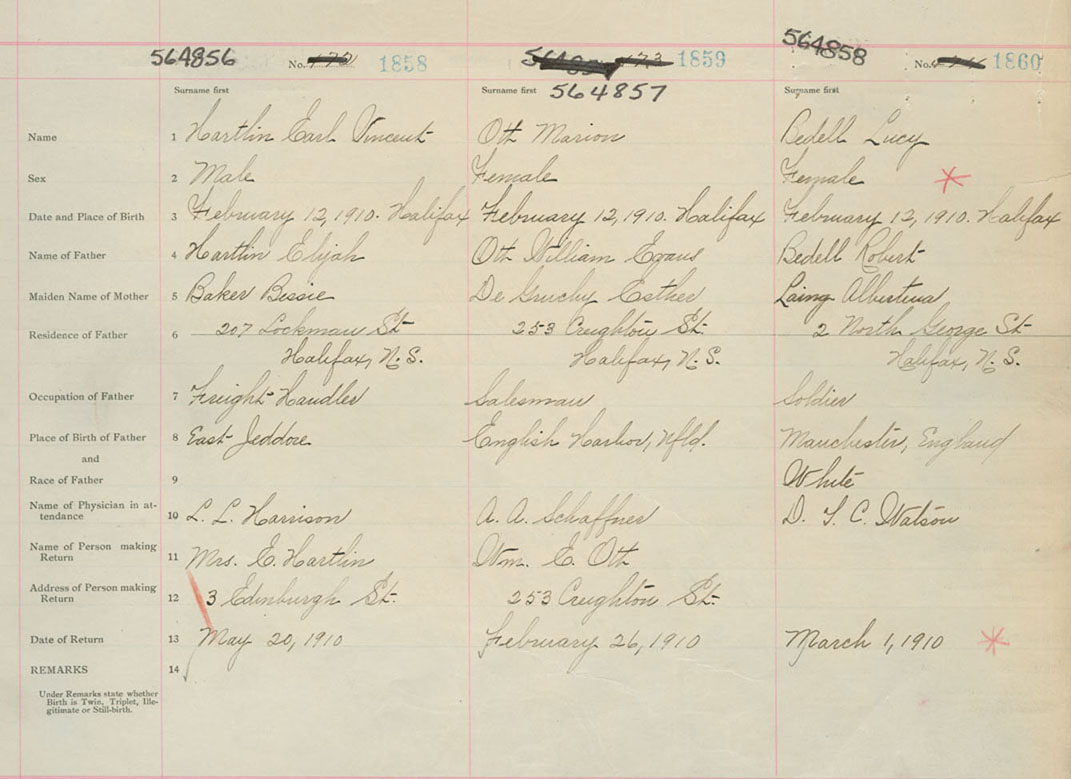 564856 No. 1858 1859 564858 No. 1860
Surname first Surname first 564857 Surname first
Name 1 Hartlin Earl Vincent Ott Marion Bedell Lucy
Sex 2 Male Female Female
Date and Place of Birth 3 February 12, 1910. Halifax February 12, 1910. Halifax February 12, 1910. Halifax
Name of Father 4 Hartlin Elijah Ott William Evans Bedell Robert
Maiden Name of Mother 5 Baker Bessie De Gruchy Esther Laing Albertina
Residence of Father 6 207 Lockman St. 253 Creighton St. 2 North George St.
Halifax, N.S. Halifax, N.S. Halifax, N.S.
Occupation of Father 7 Freight Handler Salesman Soldier
Place of Birth of Father 8 East Jeddore English Harbor, Nfld. Manchester, England
and
Race of Father 9 White
Name of Physician in at-
tendance 10 L. L. Harrison A. A. Schaffner D. T. C. Watson
Name of Person making
Return 11 Mrs. E. Hartlin Wm. E. Ott
Address of Person making
Return 12 3 Edinburgh St. 253 Creighton St.
Date of Return 13 May 20, 1910 February 26, 1910 March 1, 1910
REMARKS 14
Under Remarks state whether
Birth is Twin, Triplet, Ille-
gitimate or Still-birth.